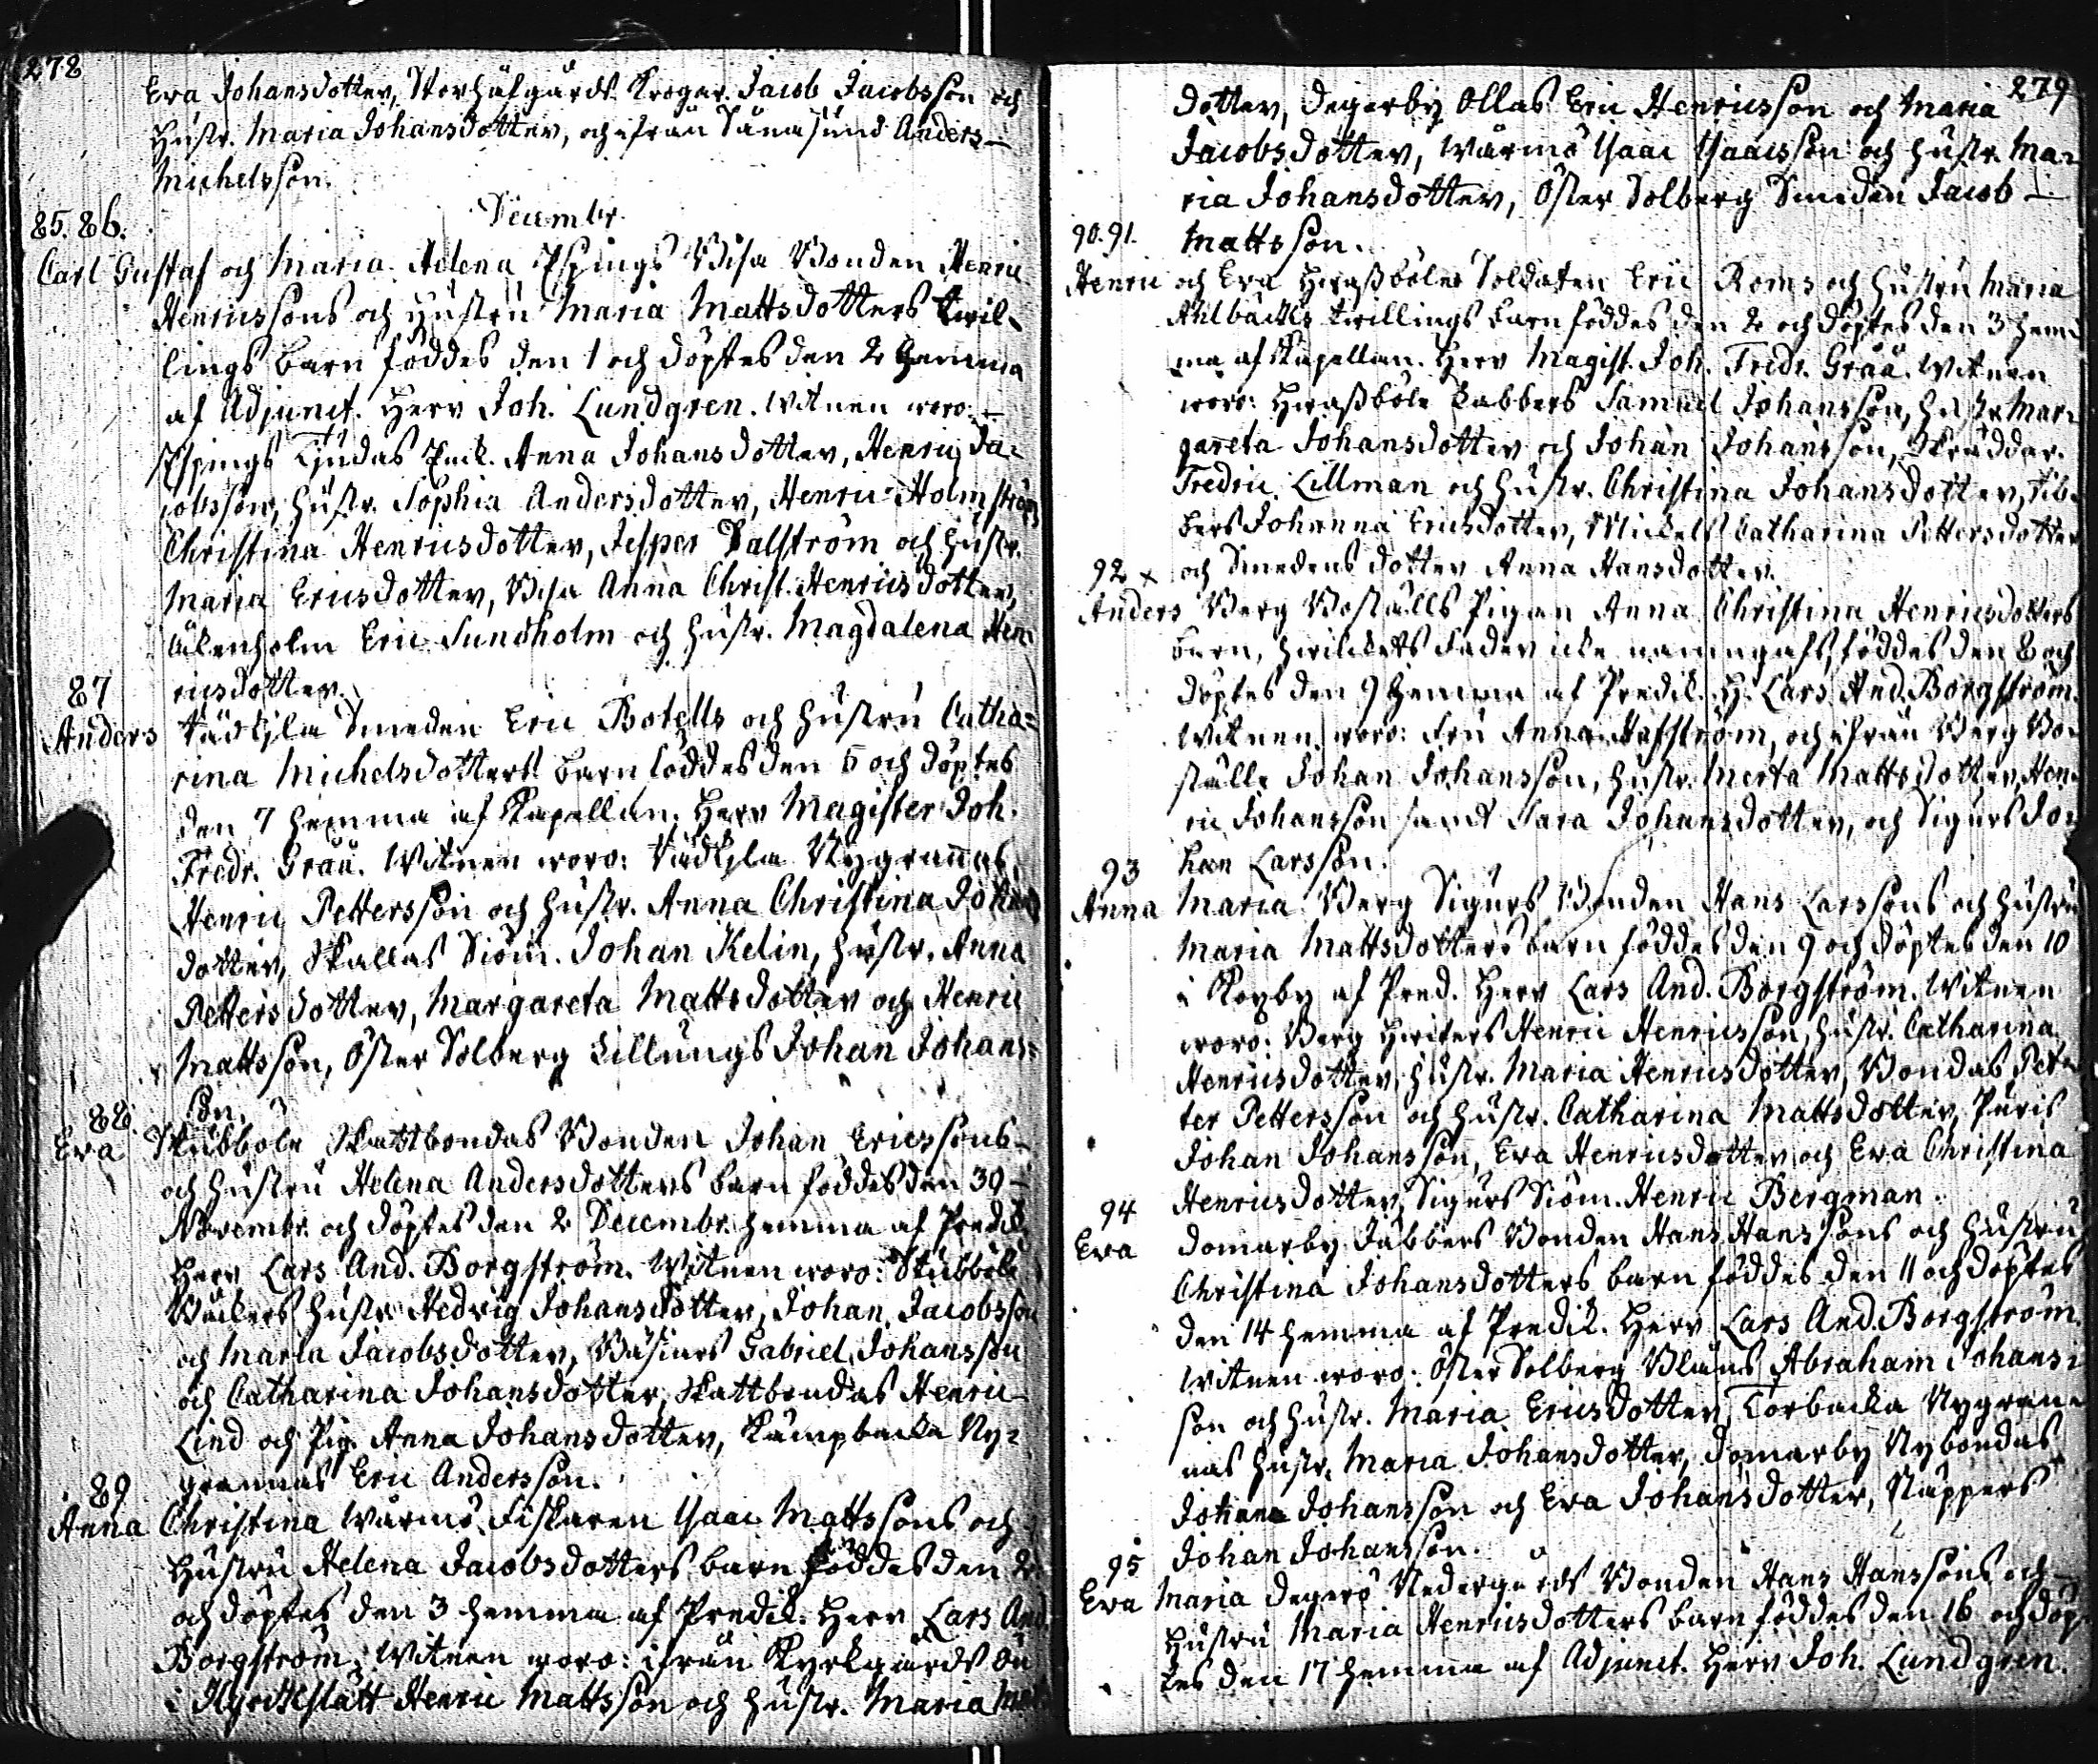 278
Eva Johansdotter, Storhälgårds Kroger Jacob Jacobsson och
Hustr. Maria Johansdotter, och ifrån Anders
Michelsson.
Decembr.
85. 86.
Carl Gustaf och Maria Helena Espings Bisa Bonden Henric
Henricssons och Hustru Maria Mattsdotters twil-
lings barn föddes den 1 och döptes den 2 hemma
af Adjunct. Herr Joh. Lundgren. Witnen woro:
Espings Enk. Anna Johansdotter, Henric Ja-
cobsson, Hustr. Sophia Andersdotter, Henric Holmström
Christina Henricsdotter, Jesper Dalström och Hustr.
Maria Ericsdotter, Bisa Anna Christ. Henricsdotter,
Eric Sundholm och Hustr. Magdalena Hen-
ricsdotter.
87
Anders Smeden Eric Botells och Hustru Catha=
rina Michelsdotters barn föddes den 5 och döptes
den 7 hemma af Kapellan. Herr Magister Joh.
Fredr. Gråå. Witnen woro: Nygrannas
Henric Pettersson och Hustr. Anna Christina Johans
dotter, Skallas Siöm. Johan Kelin, Hustr. Anna
Pettersdotter, Margareta Mattsdotter och Henric
Mattsson, Öster Solberg Lillungs Johan Johans=
son.
88.
Eva Stubböle Skattbondas Bonden Johan Ericssons
och Hustru Helena Andersdotters barn föddes den 30
Novembr. och döptes den 2 Decembr. hemma af Predik.
Herr Lars And. Borgström. Witnen woro: Stubböle
Hustr. Hedvig Johansdotter, Johan Jacobsson
och Maria Jacobsdotter, Gabriel Johansson
och Catharina Johansdotter, Skattbondas Henric
Lind och Pig. Anna Johansdotter, Kämpbacka Ny-
grannas Eric Andersson.
89
Anna Christina Wårmö Fiskaren Isaac Mattssons och
Hustru Helena Jacobsdotters barn föddes den 2
och döptes den 3 hemma af Predik. Herr Lars And.
Borgström. Witnen woro: ifrån Kyrkogårds Ön
i Kyrckslätt Henric Mattsson och Hustr. Maria
279
dotter, Degerby Ollas Eric Henricsson och Maria
Jacobsdotter, Wårmö Isaac Isaacsson och Hustr. Ma-
ria Johansdotter, Öster Solberg Smeden Jacob
Mattsson.
90. 91.
Henric och Eva Hwassböle Soldaten Eric Roms och Hustru Maria
Ahlbäcks twillings barn föddes den 2 och döptes den 3 hem-
ma af Kapellan. Herr Magist. Joh. Fredr. Gråå. Witnen
woro: Hwassböle Labbers Samuel Johansson, Hustr. Mar-
gareta Johansdotter och Johan Johansson, Skräddar.
Fredric Lillman och Hustr. Christina Johansdotter,
bers Johanna Ericsdotter, Mickels Catharina Pettersdotter
och Smedens dotter Anna Hansdotter.
92 x
Anders Berg Boställs Pigan Anna Christina Henricsdotters
barn, hwilckets fader icke namngafs, föddes den 8 och
döptes den 9 hemma af Predik. H. Lars And. Borgström.
Witnen woro: Fru Anna Hafström, och ifrån Berg Bo-
ställe Johan Johansson, Hustr. Merta Mattsdotter, Hen-
ric Johansson samt Sara Johansdotter, och Sigurs Jo-
han Larsson.
93
Anna Maria Berg Sigurs Bonden Hans Larssons och Hustru
Maria Mattsdotters barn föddes den 9 och döptes den 10
i Köpby af Pred. Herr Lars And. Borgström. Witnen
woro: Berg Hwiters Henric Henricsson, Hustr. Catharina
Henricsdotter, Hustr. Maria Henricsdotter, Bondas Pet-
ter Pettersson och Hustr. Catharina Mattsdotter, Puris
Johan Johansson, Eva Henricsdotter och Eva Christina
Henricsdotter, Sigurs Siöm. Henric Bergman.
94
Eva Domarby Jåbbers Bonden Hans Hanssons och Hustru
Christina Johansdotters barn föddes den 11 och döptes
den 14 hemma af Predik. Herr Lars And. Borgström.
Witnen woro: Öster Solberg Blåus Abraham Johans-
son och Hustr. Maria Ericsdotter, Torbacka Nygran-
nas Hustr. Maria Johansdotter, Domarby Nybondas
Johan Johansson och Eva Johansdotter, Näppers
Johan Johansson.
95
Eva Maria Degerö Nedergårds Bonden Hans Hanssons och
Hustru Maria Henricsdotters barn föddes den 16 och döp-
tes den 17 hemma af Adjunct. Herr Joh. Lundgren.